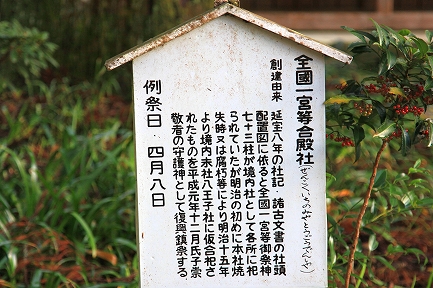 全國一宮等合殿社
創建由来
延宝八年の社記・諸古文書の社頭
配置図に依ると全國一宮等御衆神
七十三柱が境内社として各所に祀
られていたが明治の初めに本社焼
失時又は腐朽等により明治十五年
より境内末社八王子社に仮合祀さ
れたものを平成元年十二月氏子崇
敬者の守護神として復興鎮祭する。
例祭日・四月八日